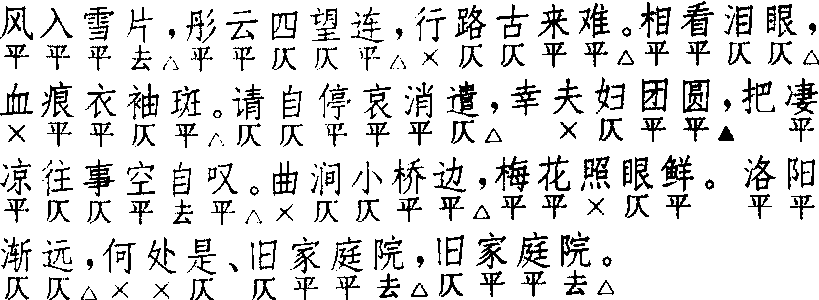 风入雪片，彤云四望连，行路古来难。相看泪眼，
平平平去△平平仄仄平△×仄仄平平△平平仄仄△
血痕衣袖斑。请自停哀消遣，幸夫妇团圆，把凄
×平平仄平△仄仄平平平仄△×仄平平▲平
凉往事空自叹。曲涧小桥边，梅花照眼鲜。洛阳
平仄仄平去平△×仄仄平平△平平×仄平平平
渐远，何处是、旧家庭院，旧家庭院。
仄仄△××仄仄平平去△仄平平去△